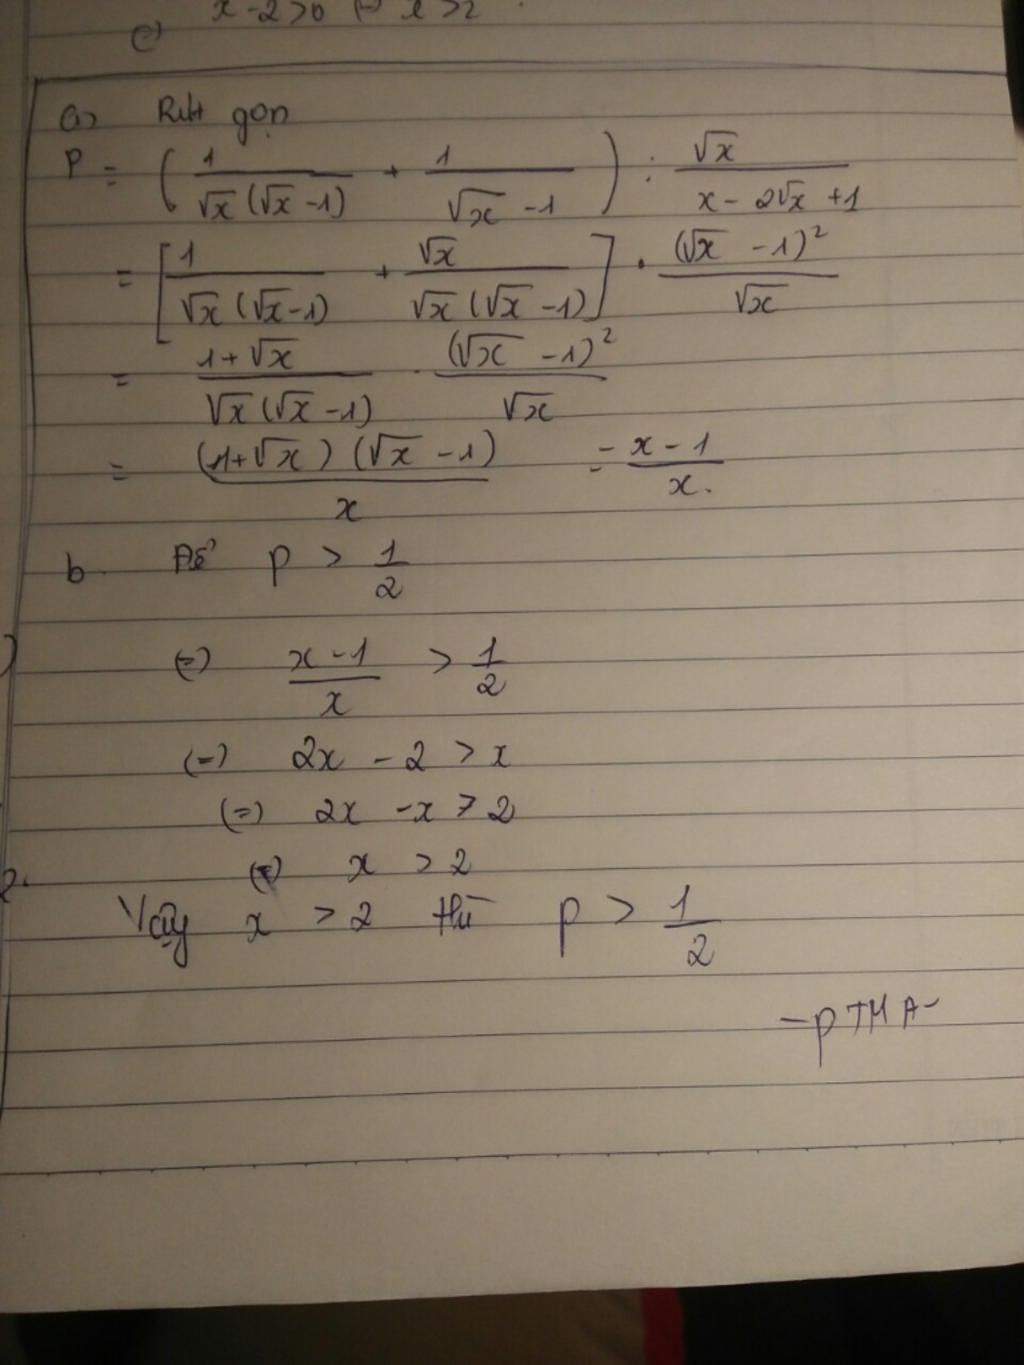 x - 2 > 0 (=) x > 2
e)
a) Rút gọn
P = ( 1/(√x (√x - 1)) + 1/(√x - 1) ) : √x/(x - 2√x + 1)
= [ 1/(√x (√x - 1)) + √x/(√x (√x - 1)) ] . (√x - 1)²/√x
= (1 + √x)/(√x (√x - 1)) . (√x - 1)²/√x
= (1 + √x) (√x - 1)/x = x - 1/x.
b. Để P > 1/2
(=) x - 1/x > 1/2
(=) 2x - 2 > x
(=) 2x - x > 2
(=) x > 2
Vậy x > 2 thì P > 1/2
- P TM A -